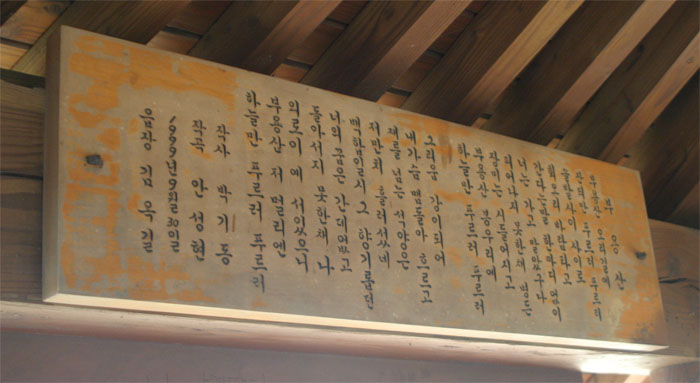 부용산
부용산 오리길에
잔디만 푸르러 푸르러
솔밭사이 사이로
회오리 바람타고
간다는 말한마디 없이
너는 가고 말았구나
피어나지 못한채 병든
장미는 시들어지고
부용산 봉우리에
하늘만 푸르러 푸르러
그리움 강이되어
내가슴 맴돌아 흐르고
재를 넘는 석양은
저만치 홀로섰네
백합일시 그 향기롭던
너의 꿈은 간데없고
돌아서지 못한채 나
외로이 예 서있으니
부용산 저 멀리엔
하늘만 푸르러 푸르러
작사 박기동
작곡 안성현
김